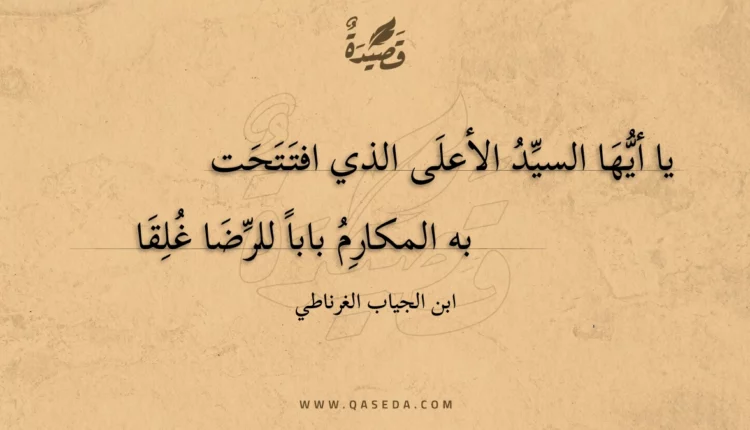 قَصِيْدَةٌ
يا أيُّهَا السيِّدُ الأعلَى الذي افتَتَحَت
به المكارِمُ باباً للرِّضَا غُلِقَا
ابن الجياب الغرناطي
WWW.QASEDA.COM